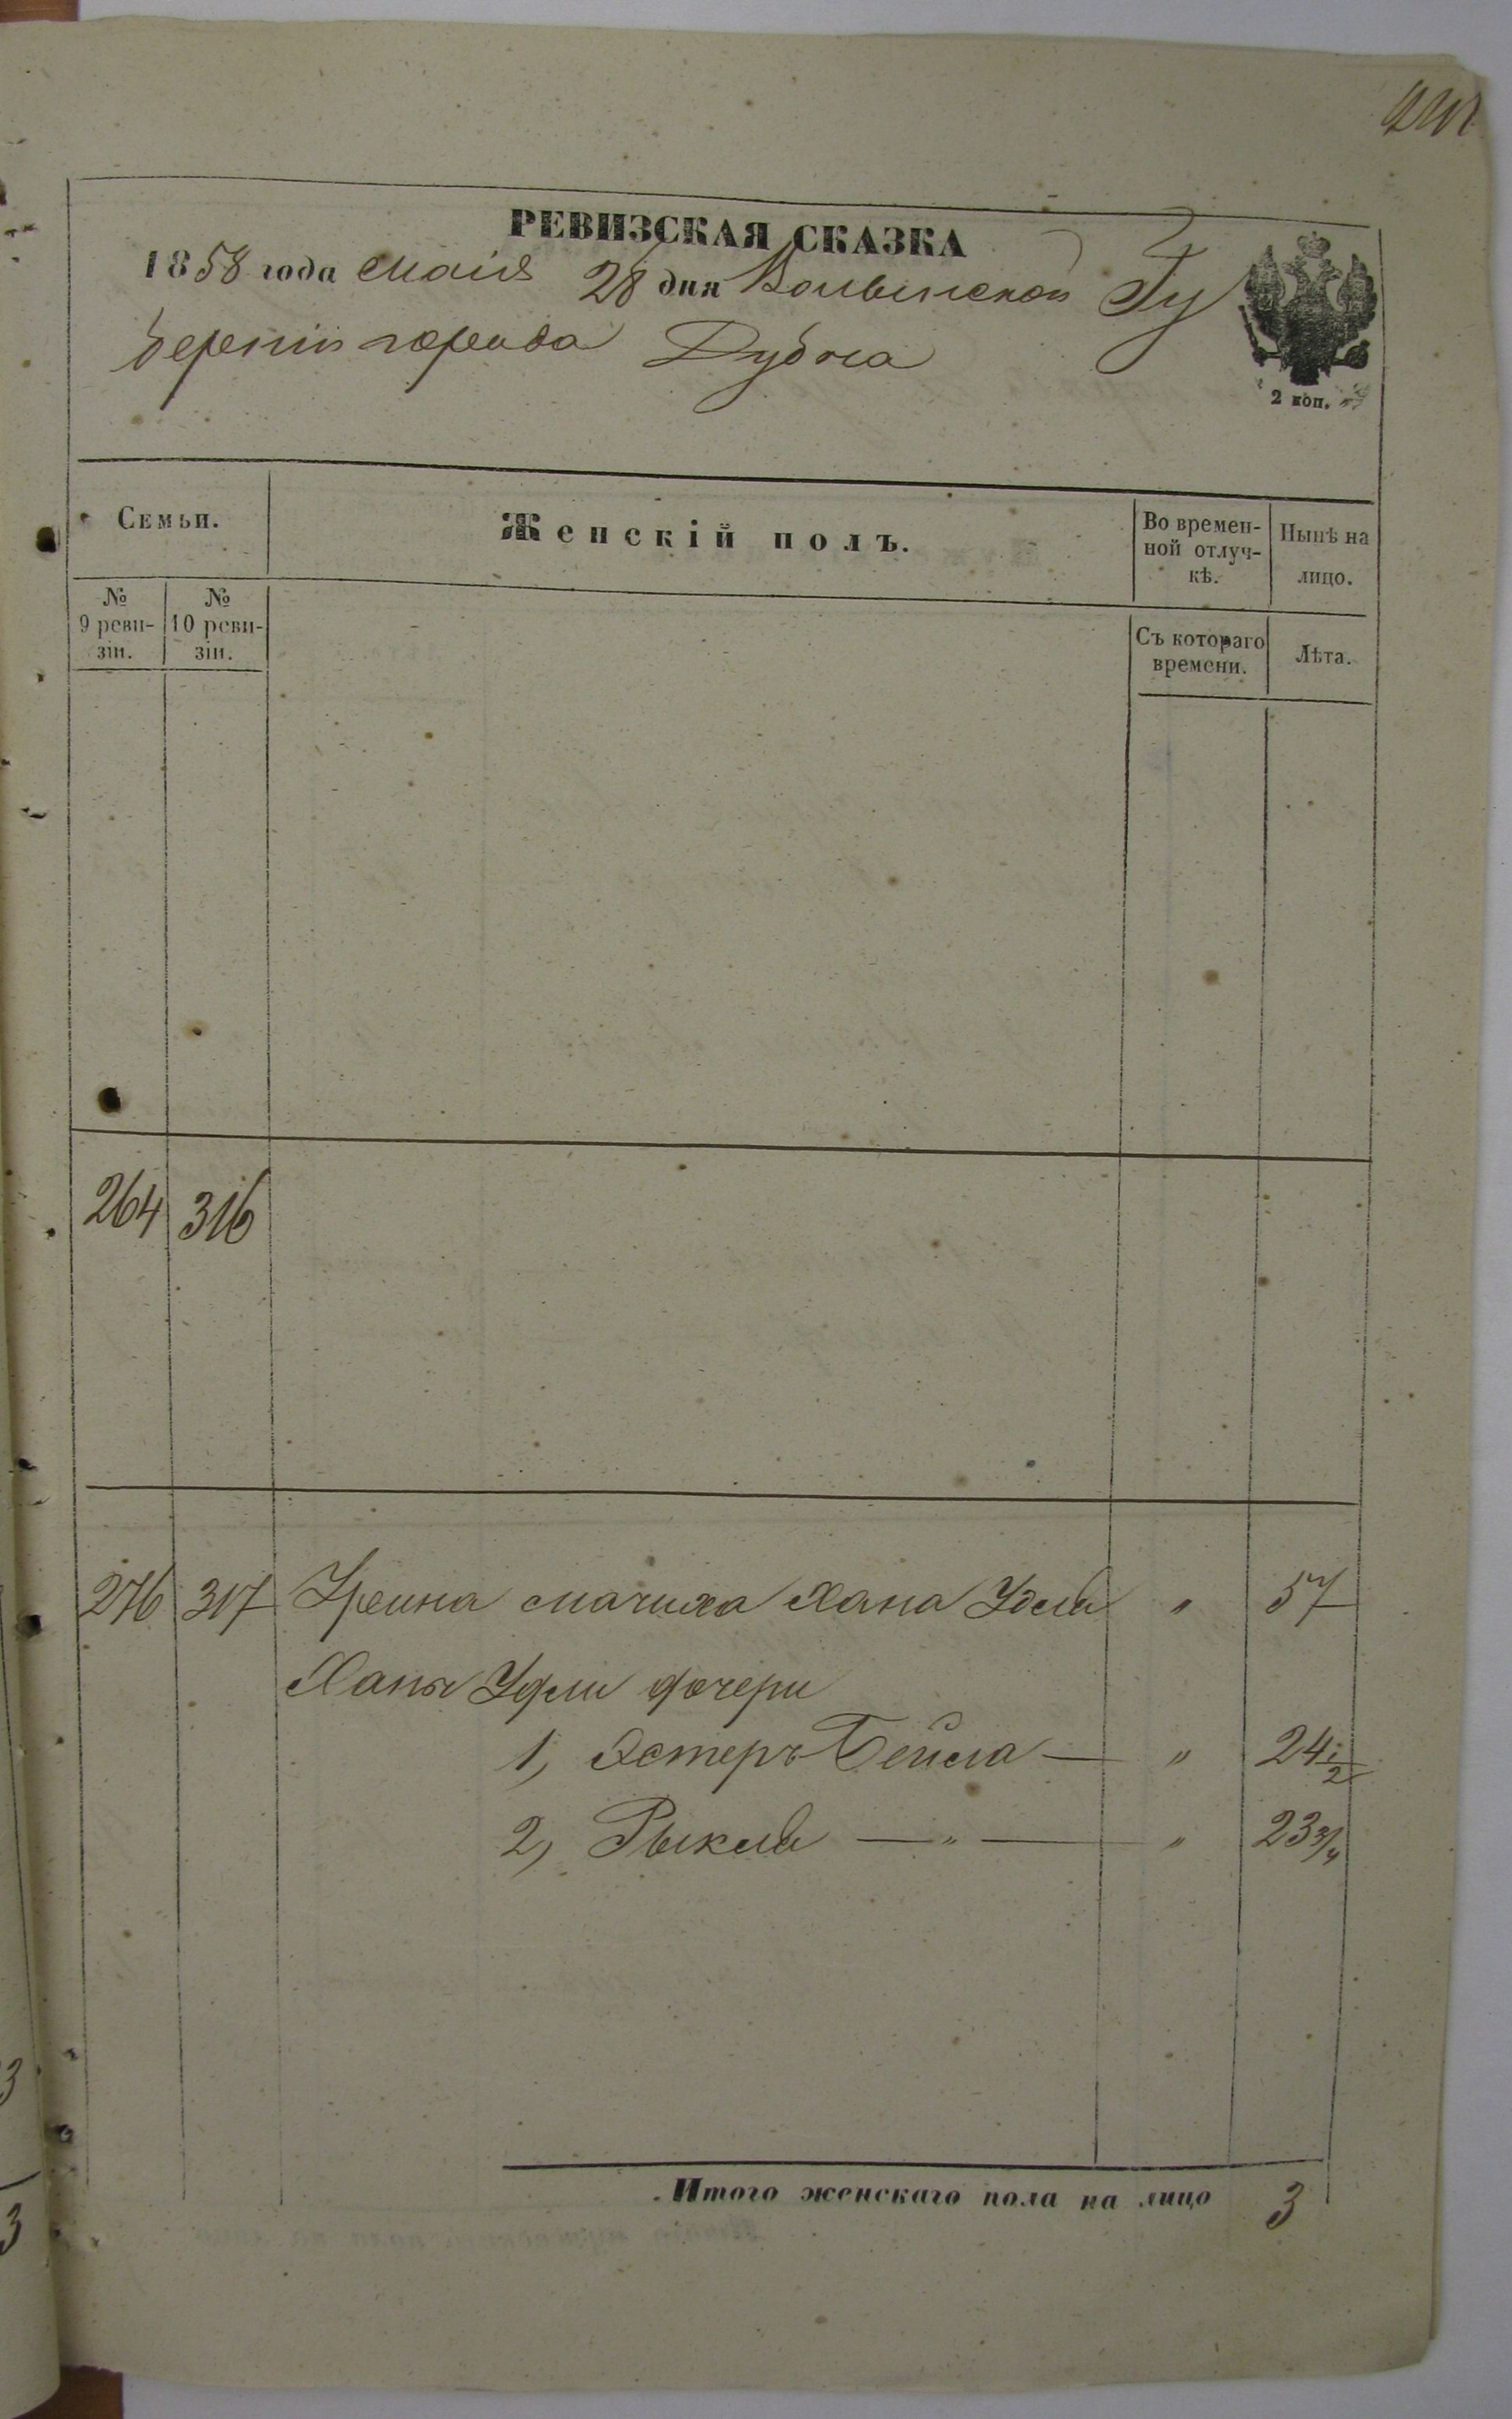 РЕВИЗСКАЯ СКАЗКА
1858 года Маія 28 дня Волынской Гу
берніи города Дубна
2 коп.
Семьи.
Женскій полъ.
Во времен-
ной отлуч-
кѣ.
Нынѣ на
лицо.
№
9 реви-
зіи.
№
10 реви-
зіи.
Съ котораго
времени.
Лѣта.
264 316
276 317 мачиха Хана Удля " 57
Ханы Удли дочери
1, Эстеръ Бейла — " 24 1/2
2, Рыкля — " — " 23 3/4
Итого женскаго пола на лицо 3